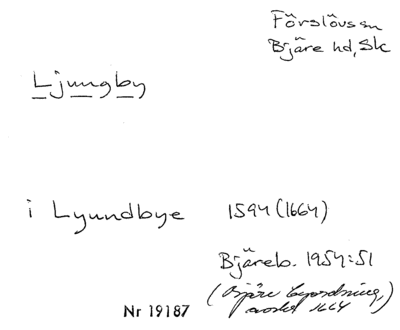 Förslövs sn
Bjäre hd, Sk
Ljungby
i Lyundbye 1594 (1664)
Bjäreb. 1954:51
(Bjäre byordning,
1664)
Nr 19187